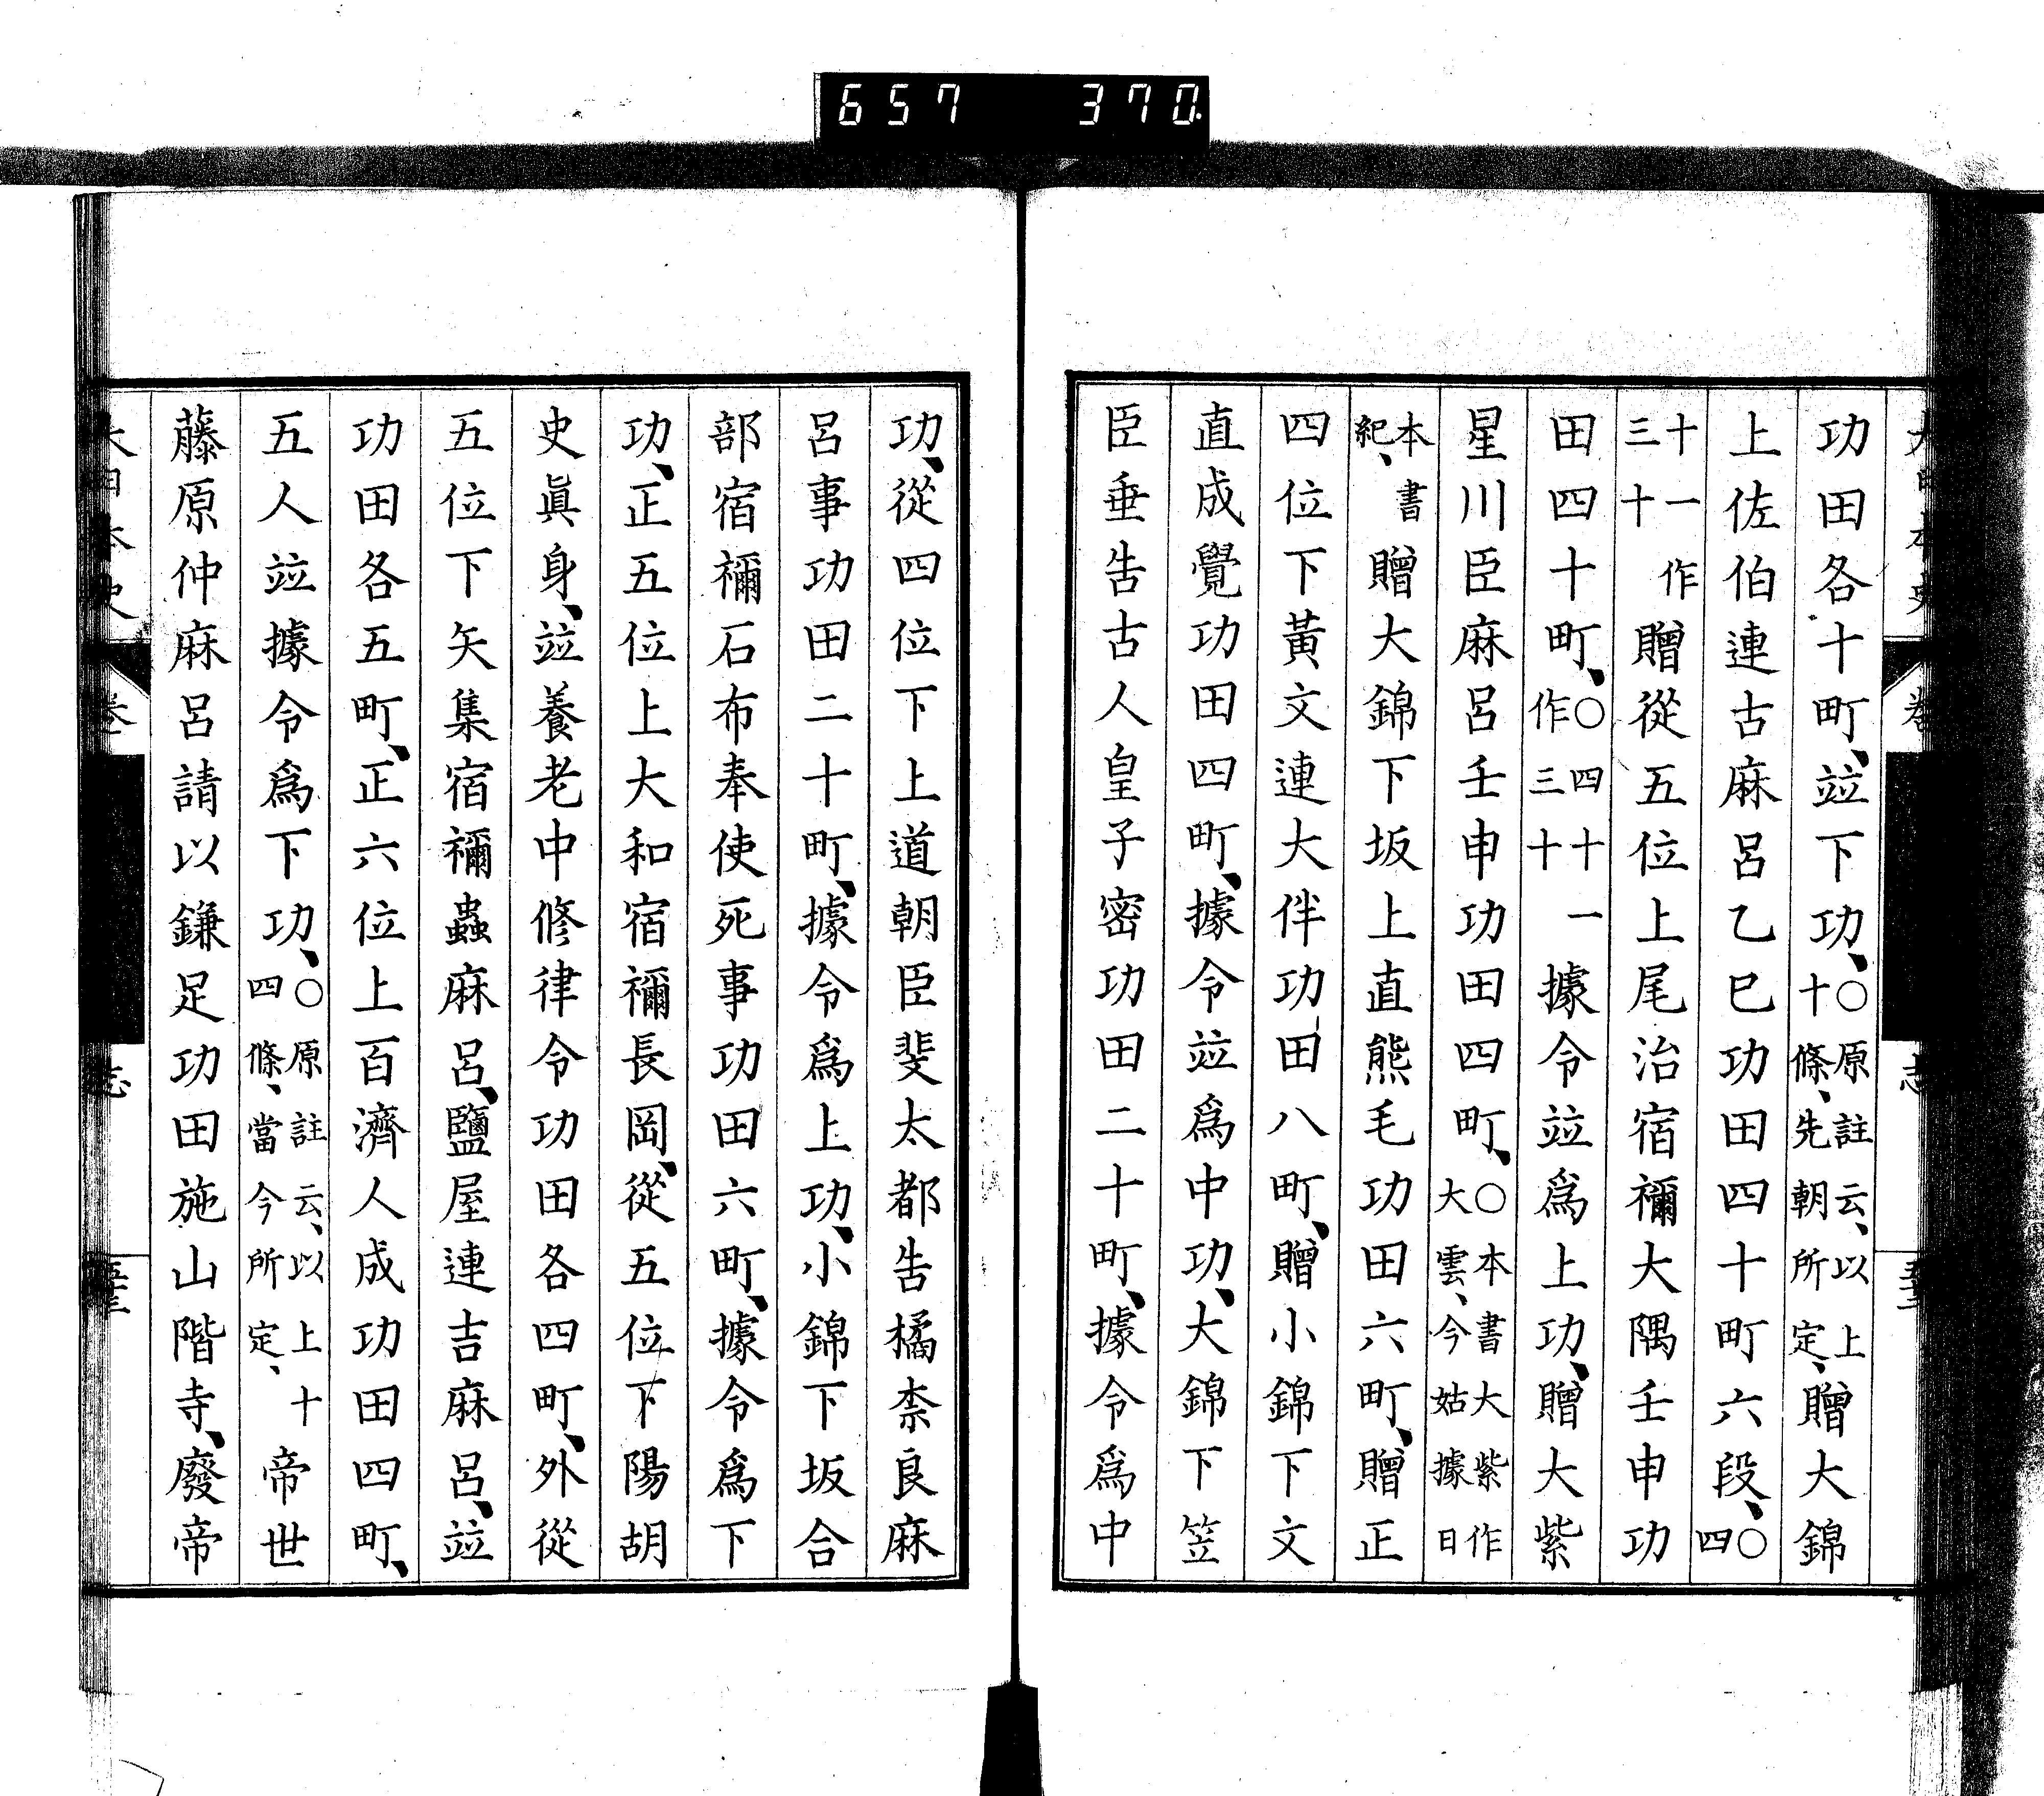 657 370
功田各十町、竝下功、○原註云、以上十條、先朝所定、贈大錦
上佐伯連古麻呂乙巳功田四十町六段、○四
十一作三十贈從五位上尾治宿禰大隅壬申功
田四十町、○四十一作三十據令竝爲上功、贈大紫
星川臣麻呂壬申功田四町、○本書大紫作大雲、今姑據日
本書紀、贈大錦下坂上直熊毛功田六町、贈正
四位下黃文連大伴功田八町、贈小錦下文
直成覺功田四町、據令竝爲中功、大錦下笠
臣垂告古人皇子密功田二十町、據令爲中
功、從四位下上道朝臣斐太都告橘柰良麻
呂事功田二十町、據令爲上功、小錦下坂合
部宿禰石布奉使死事功田六町、據令爲下
功、正五位上大和宿禰長岡、從五位下陽胡
史眞身、竝養老中修律令功田各四町、外從
五位下矢集宿禰蟲麻呂、鹽屋連吉麻呂、竝
功田各五町、正六位上百濟人成功田四町、
五人竝據令爲下功、○原註云、以上十四條、當今所定、帝世
藤原仲麻呂請以鎌足功田施山階寺、廢帝
大日本史 卷 志